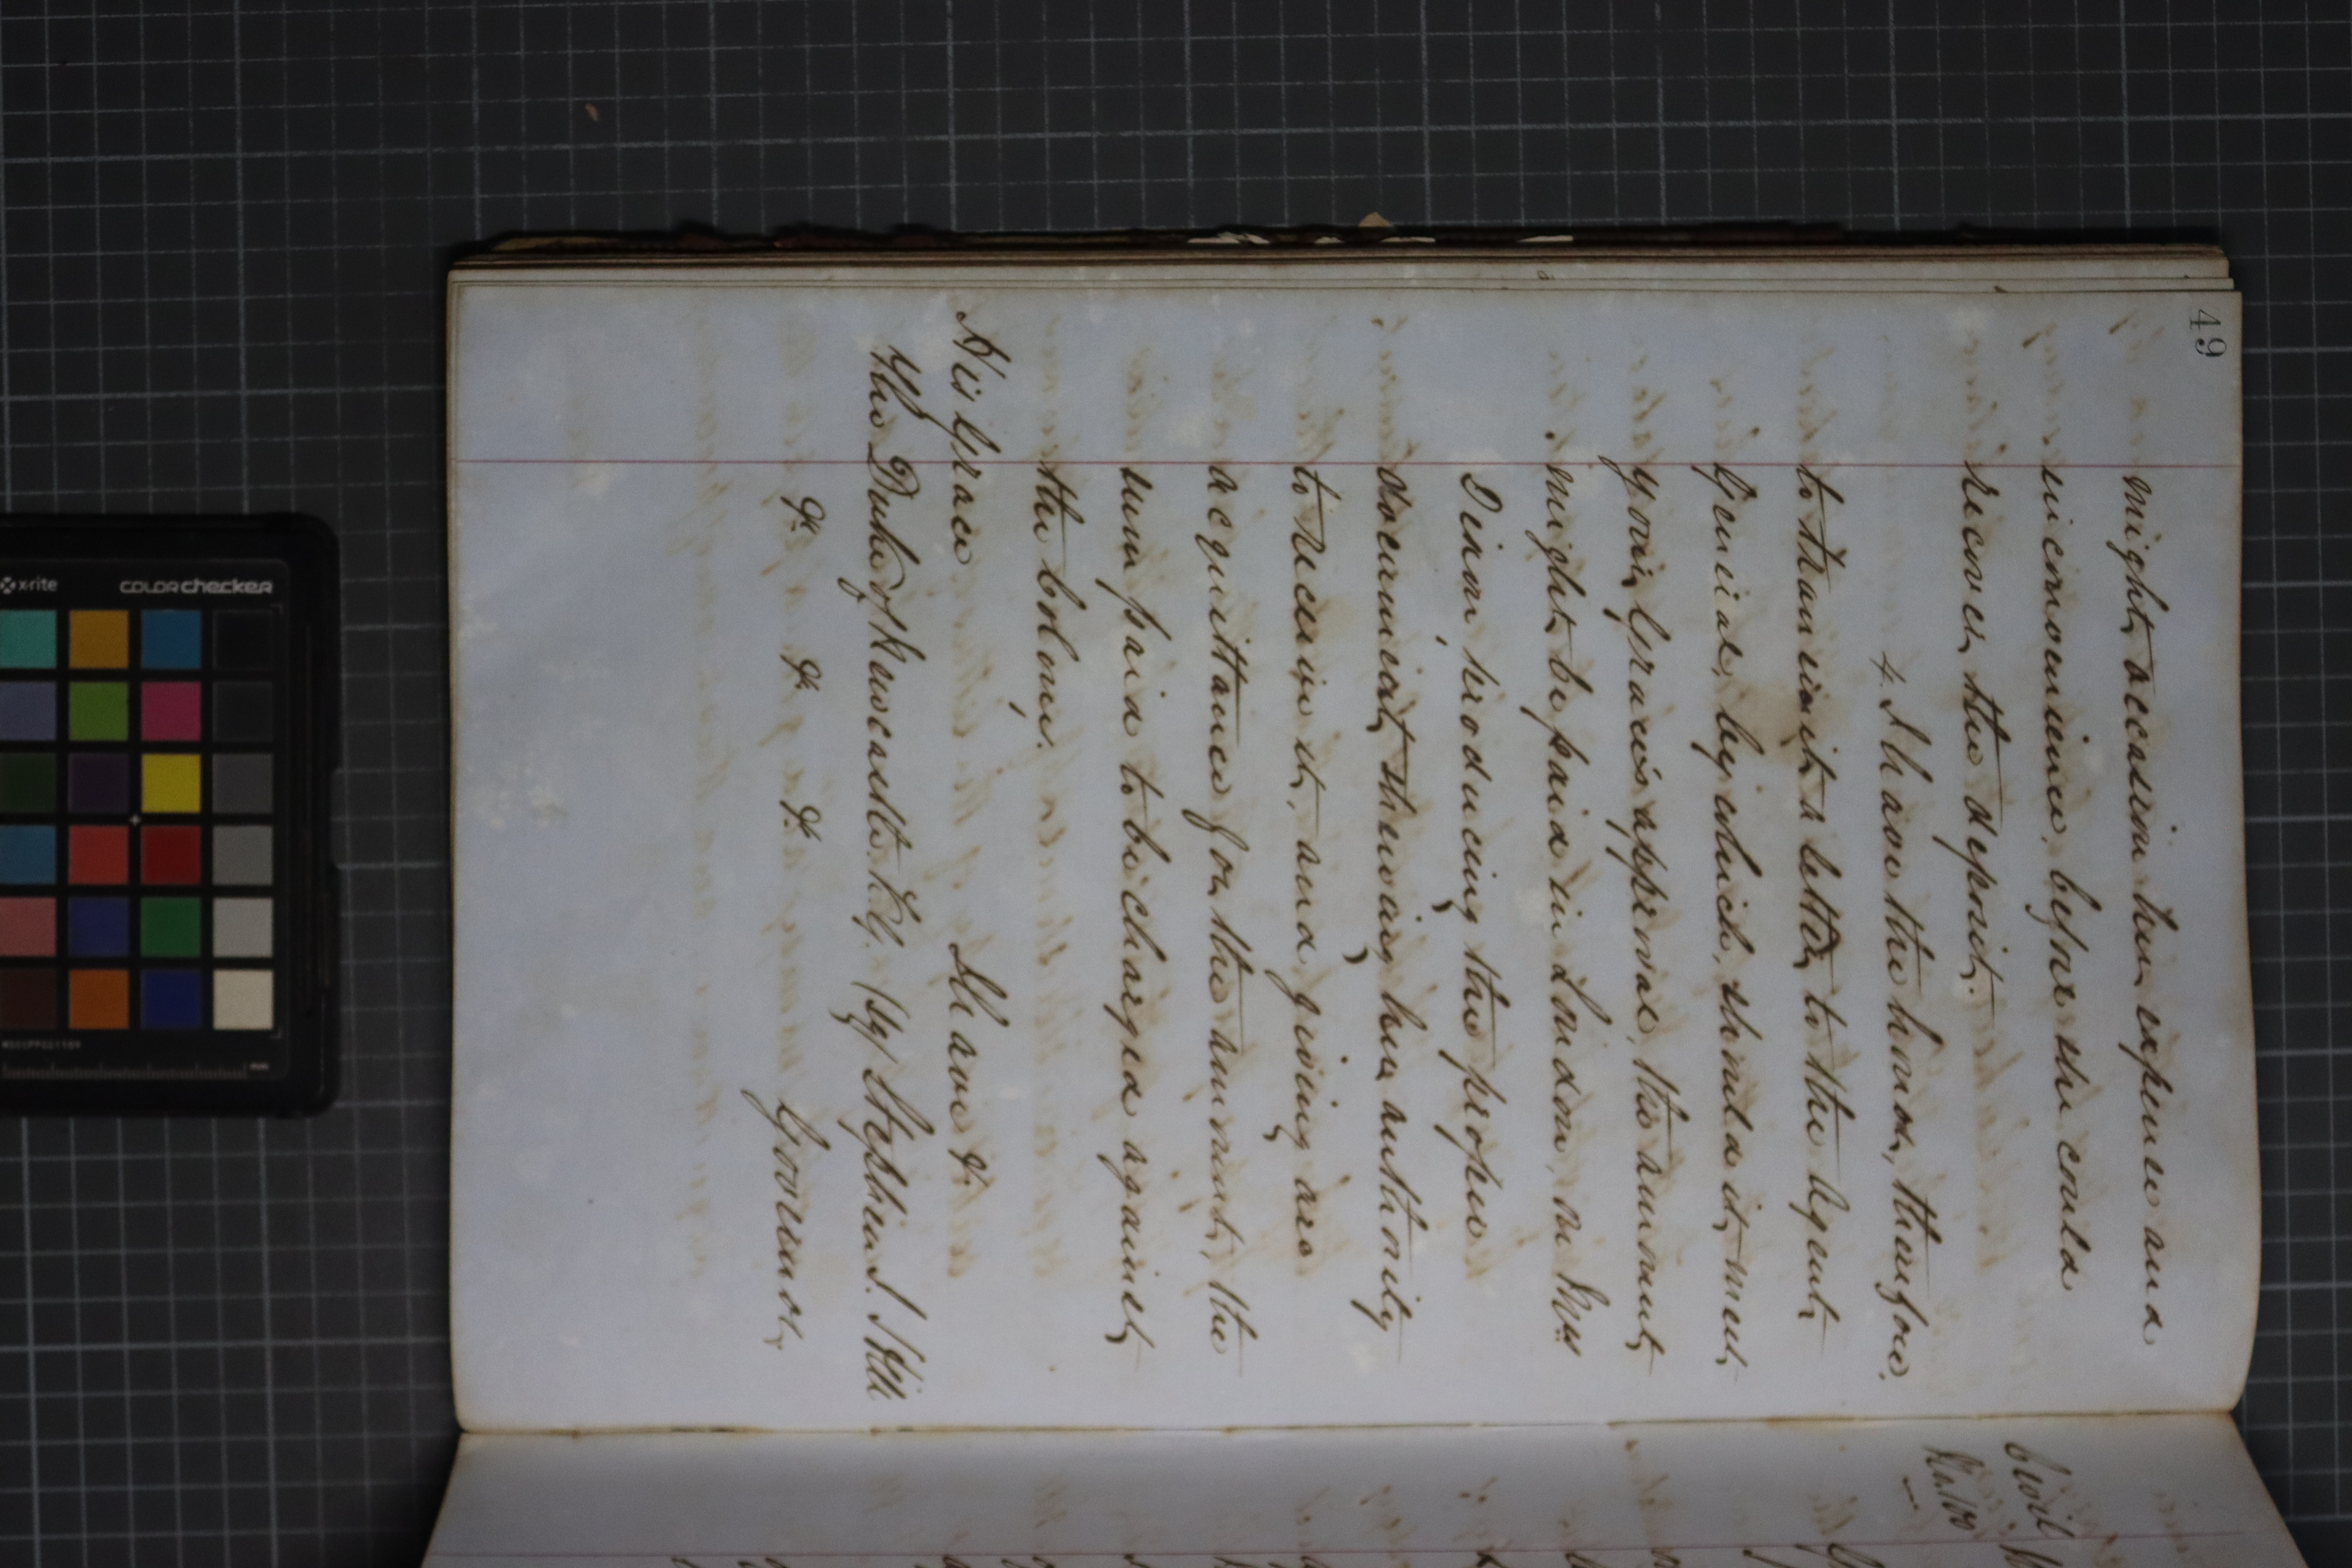 49
might occasion her expense and
inconvenience, before she could
recover the deposit.
4. I have the honor, therefore,
to transmit a letter to the Agent
General, by which, should it meet
your Grace's approval, the amount
might be paid in London, on Mrs
Dixon, producing the proper
document shewing her authority
to receive it, and giving an
acquittance for the amount, the
sum paid to be charged against
the Colony.
I have &c
His Grace
The Duke of Newcastle. K.G. (Sg) Stephen J. Hill
&c &c &c Governor,
Civil
No. 190